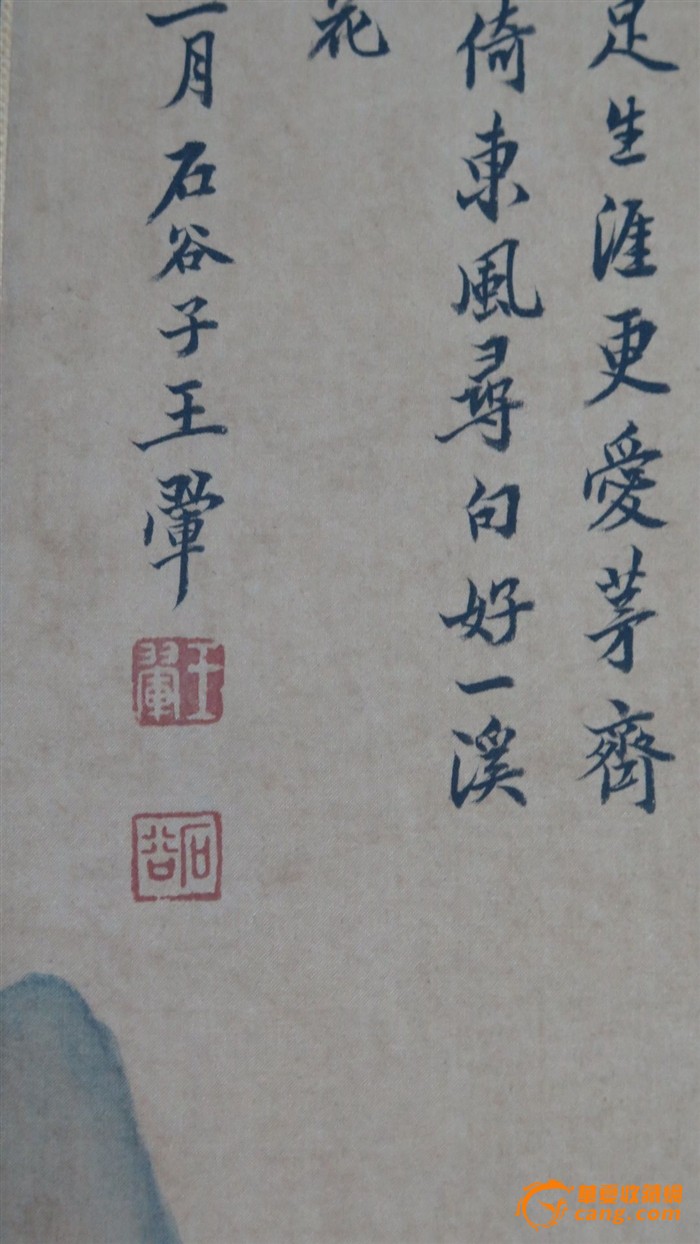 足生涯更愛茅齋
倚東風尋句好一溪
花
一月石谷子王翬
王翬
石谷
華夏收藏網
cang.com